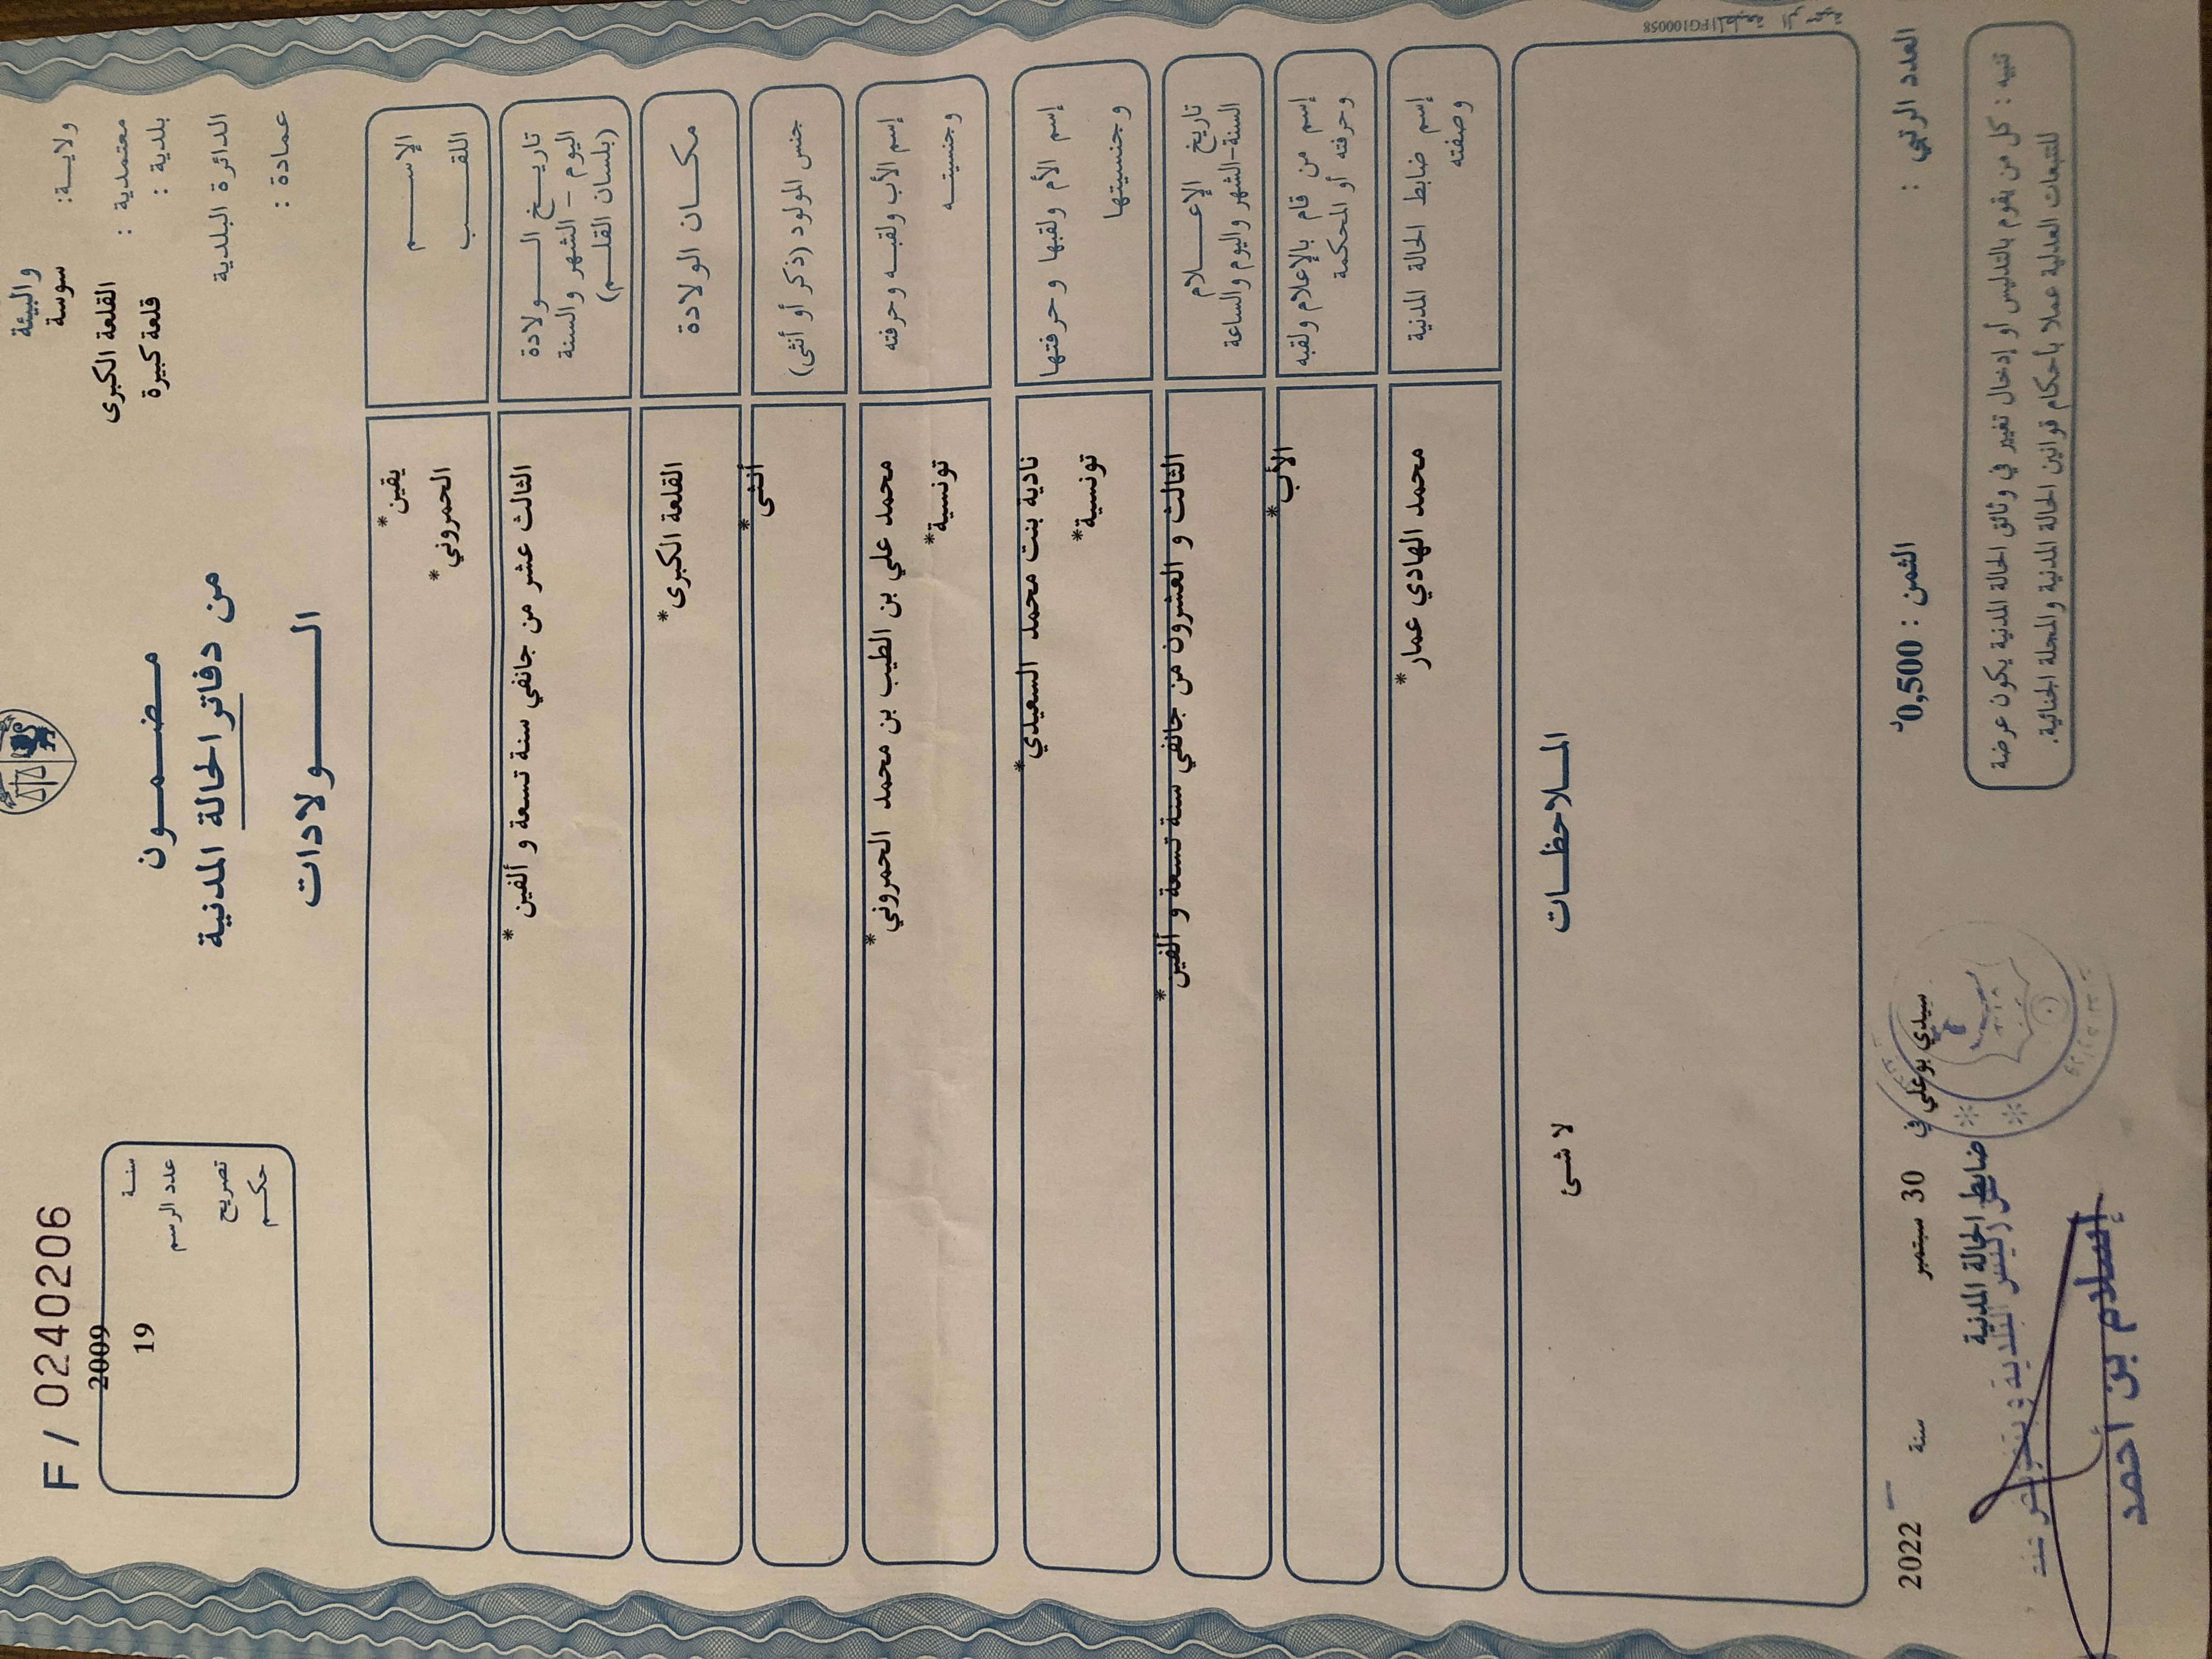 والبيئة
ولاية: سوسة
معتمدية : القلعة الكبرى
بلدية : قلعة كبيرة
الدائرة البلدية
عمادة :
F / 0240206
سنة 2009
عدد الرسم 19
تصريح
حكم
مضمون
من دفاتر الحالة المدنية
الولادات
الإسم يقين*
اللقب الحمروني*
تاريخ الولادة
اليوم - الشهر والسنة
(بلسان القلم)
الثالث عشر من جانفي سنة تسعة و ألفين*
مكان الولادة القلعة الكبرى*
جنس المولود (ذكر أو أنثى) أنثى*
إسم الأب ولقبه وحرفته محمد علي بن الطيب بن محمد الحمروني*
وجنسيته تونسية*
إسم الأم ولقبها وحرفتها نادية بنت محمد السعيدي*
وجنسيتها تونسية*
تاريخ الإعلام
السنة-الشهر واليوم والساعة
الثالث و العشرون من جانفي سنة تسعة و ألفين*
إسم من قام بالإعلام ولقبه الأب*
وحرفته أو المحكمة
إسم ضابط الحالة المدنية محمد الهادي عمار*
وصفته
الملاحظات
لا شئ
العدد الرتبي :
الثمن : 0,500د
سيدي بوعلي في 30 سبتمبر سنة 2022
ضابط الحالة المدنية
إسلام بن أحمد
تنبيه : كل من يقوم بالتدليس أو إدخال تغيير في وثائق الحالة المدنية يكون عرضة
للتتبعات العدلية عملا بأحكام قوانين الحالة المدنية والمجلة الجنائية.